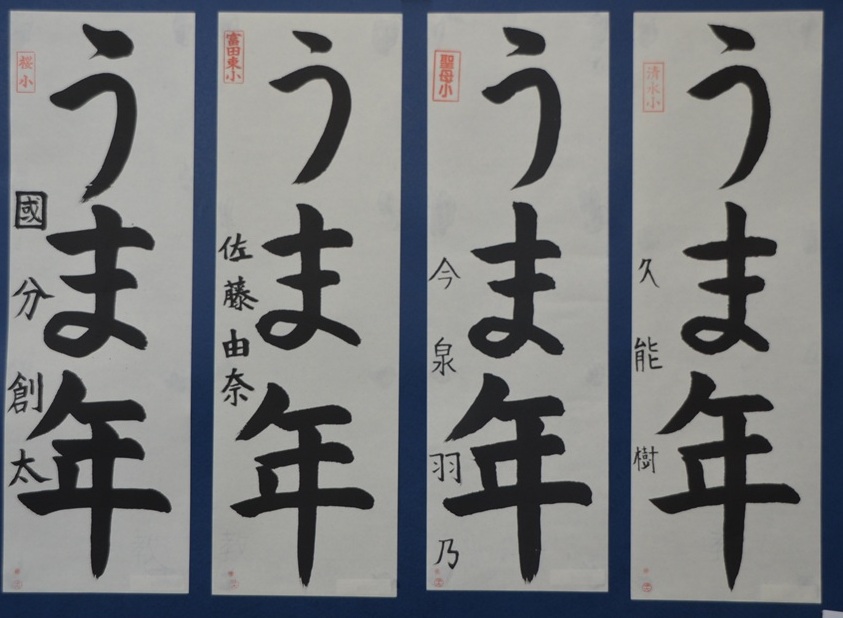 うま年
清水小
久能樹
うま年
聖母小
今泉羽乃
うま年
富田東小
佐藤由奈
うま年
桜小
國分創太